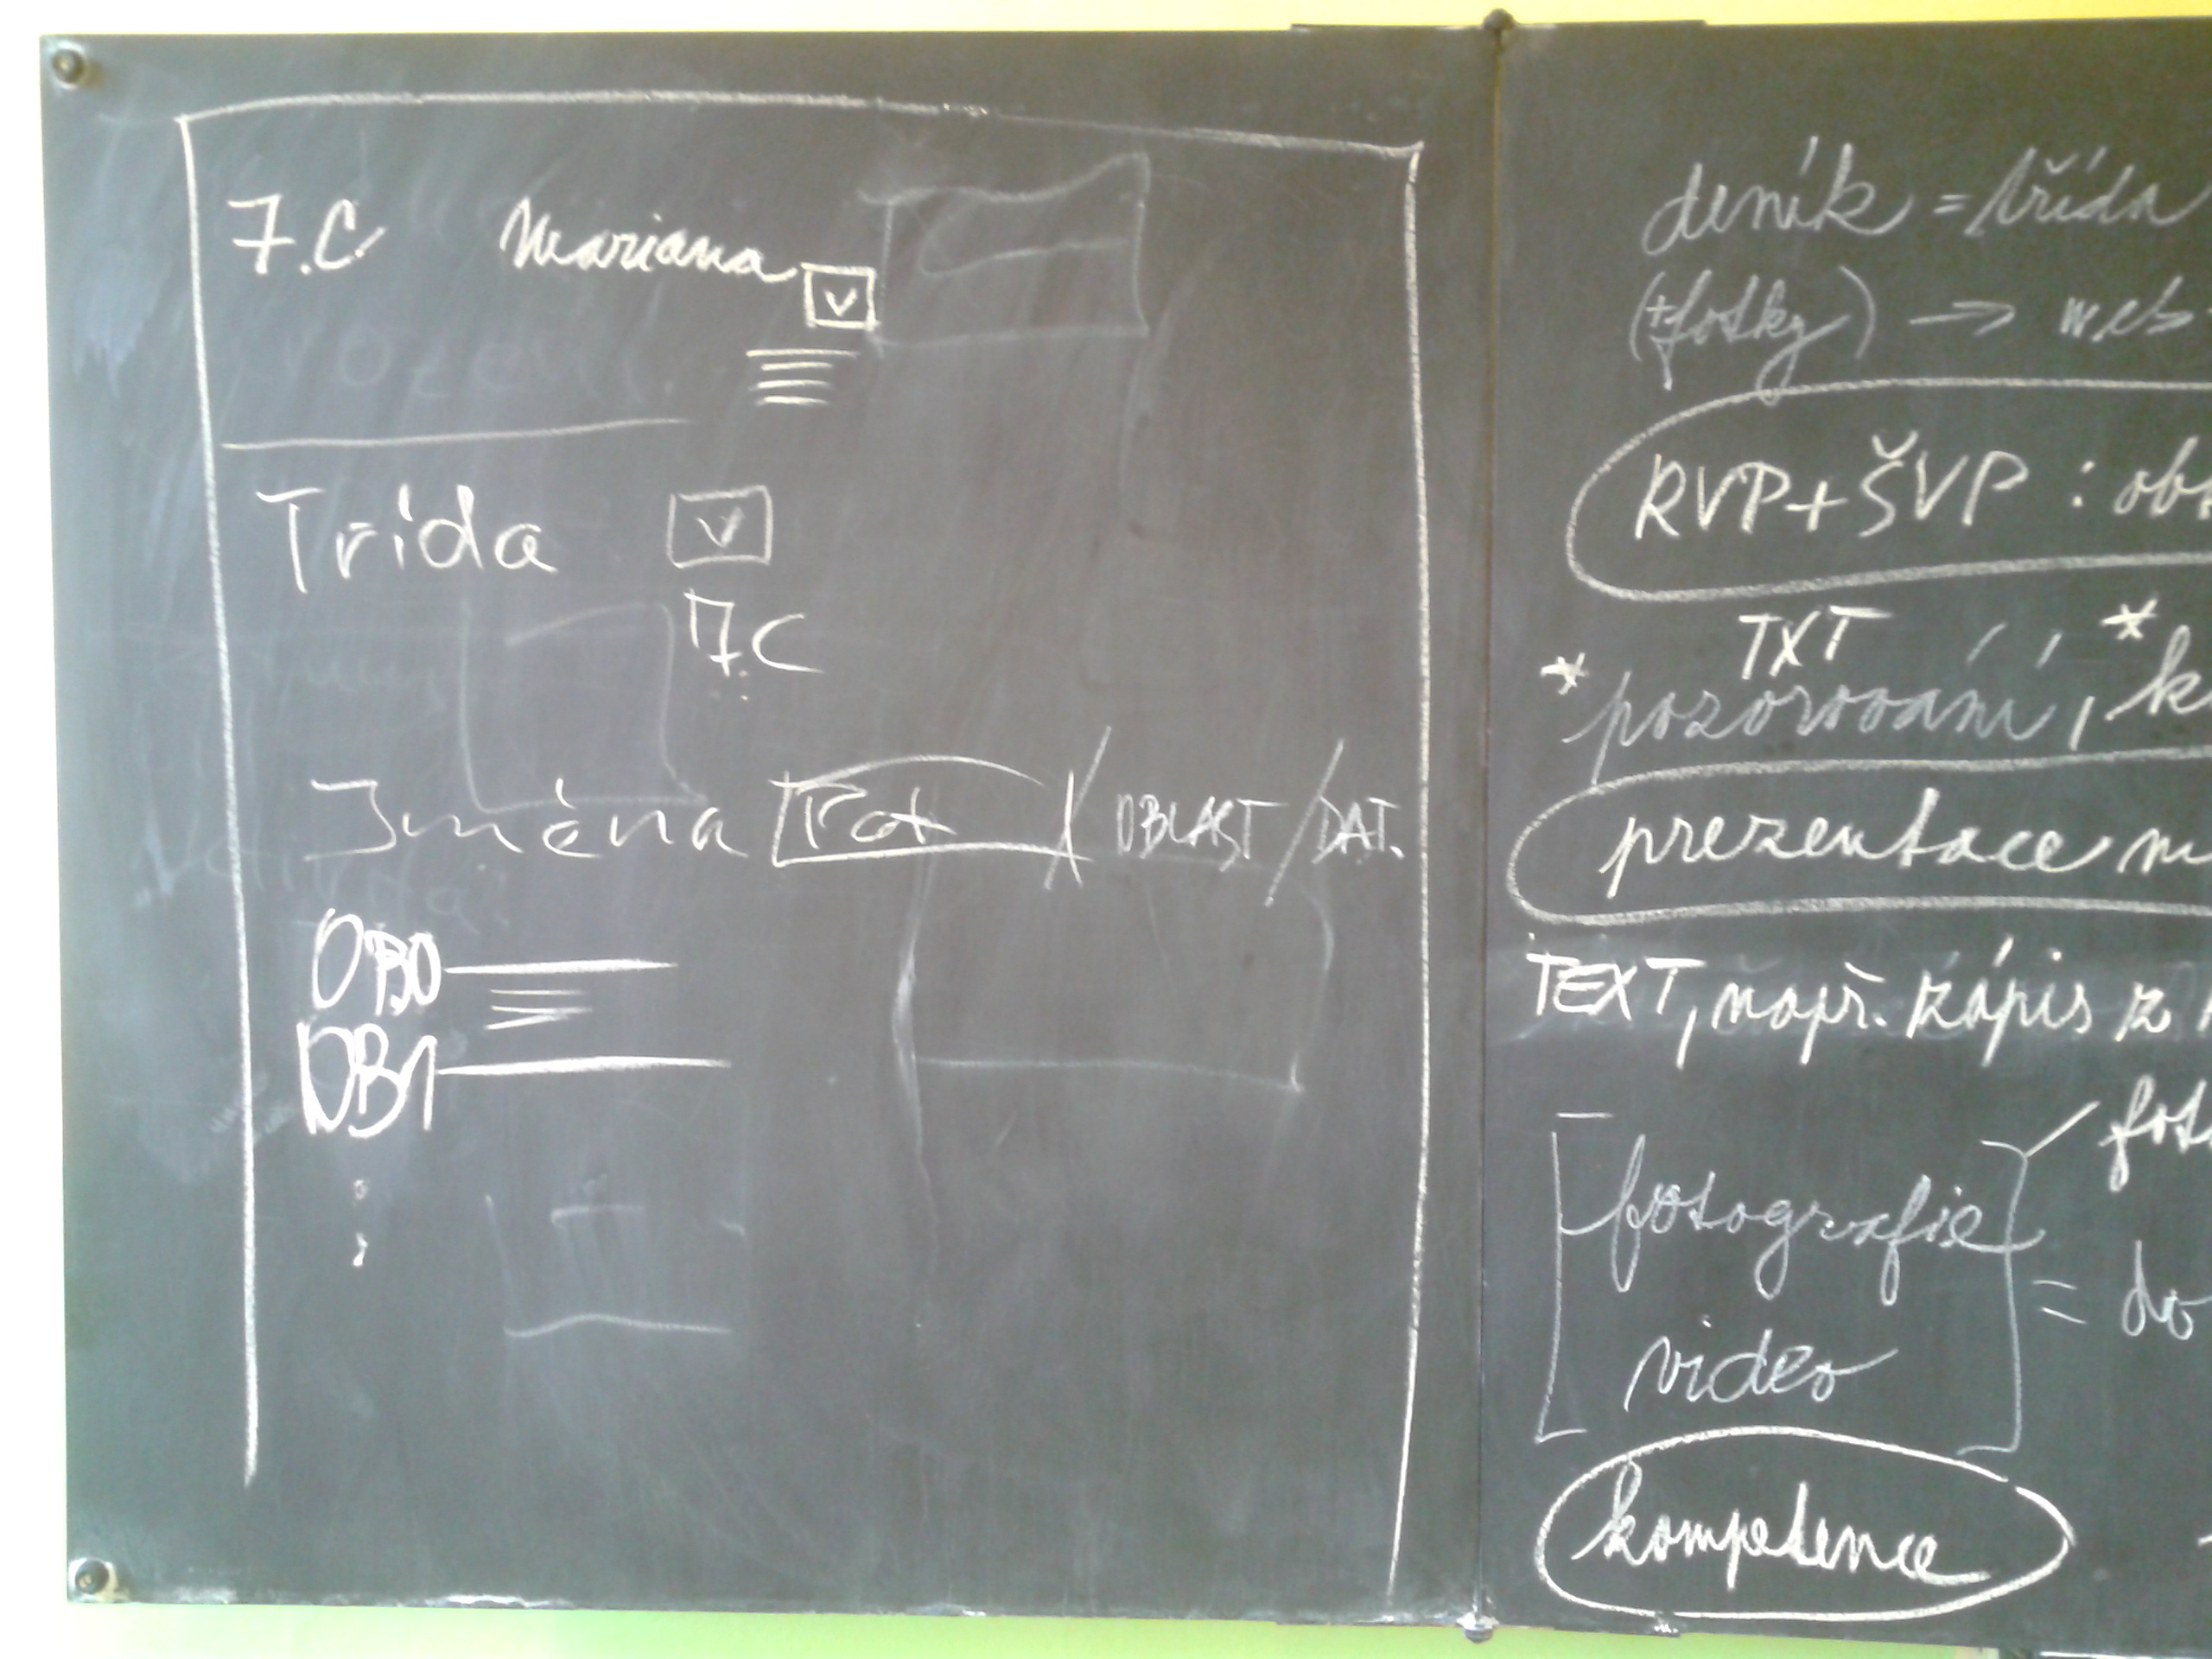 7.C. Mariana
v
Trída v
7.C
Jména Fot / OBLAST / DAT.
OB0
OB1
deník = třída
(+fotky) → web
RVP+ŠVP : ob
TXT
* pozorování, * k
prezentace m
TEXT, např. zápis z
fotografie
fot
video
= do
kompetence